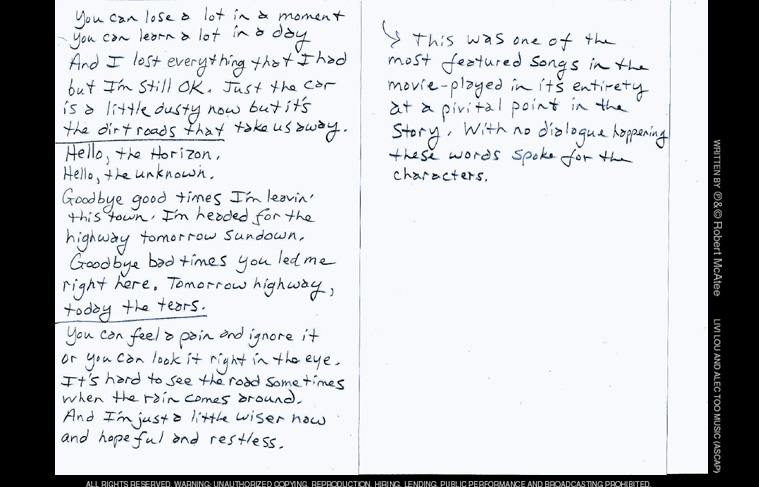 You can lose a lot in a moment
You can learn a lot in a day
And I lost everything that I had
but I'm still OK. Just the car
is a little dusty now but it's
the dirt roads that take us away.
Hello, the Horizon.
Hello, the unknown.
Goodbye good times I'm leavin'
this town. I'm headed for the
highway tomorrow sundown.
Goodbye bad times you led me
right here. Tomorrow highway,
today the tears.
You can feel a pain and ignore it
or you can look it right in the eye.
It's hard to see the road sometimes
when the rain comes around.
And I'm just a little wiser now
and hopeful and restless.
This was one of the
most featured songs in the
movie-played in its entirety
at a pivital point in the
story. With no dialogue happening
these words spoke for the
characters.
WRITTEN BY ℗ & © Robert McAtee
LIVI LOU AND ALEC TOO MUSIC (ASCAP)
ALL RIGHTS RESERVED. WARNING: UNAUTHORIZED COPYING, REPRODUCTION, HIRING, LENDING, PUBLIC PERFORMANCE AND BROADCASTING PROHIBITED.